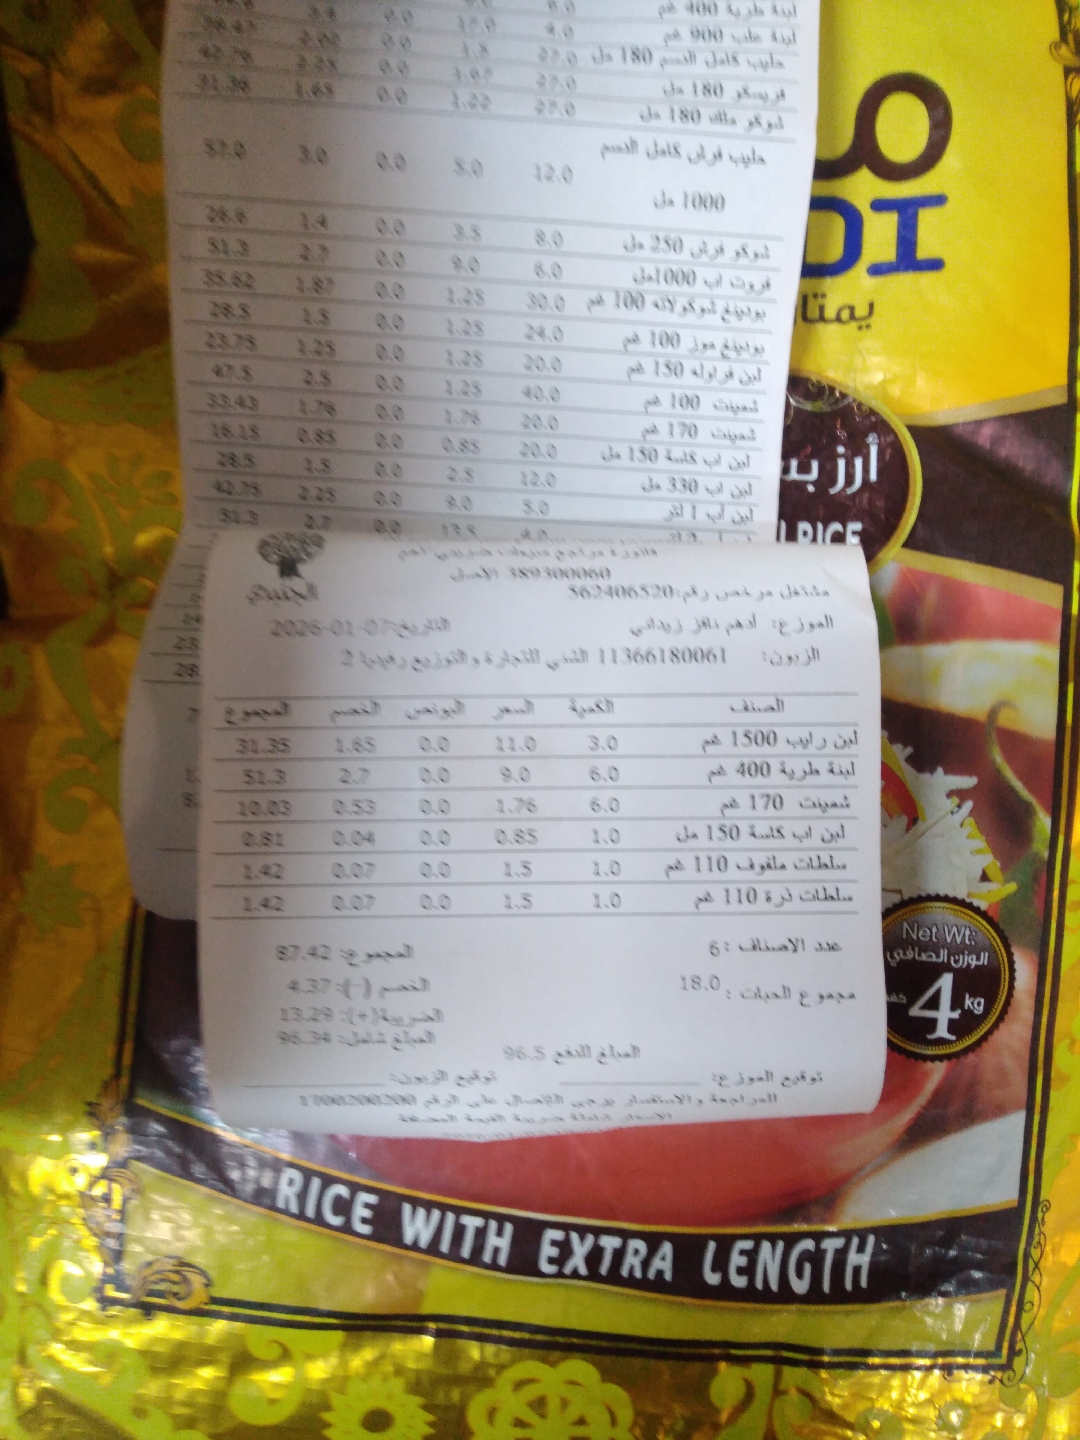 لبنة طرية 400 غم
لبنة علب 900 غم 4.0 17.0 0.0
حليب كامل الدسم 180 مل 27.0 1.5 0.0 2.02
فريسكو 180 مل 27.0 1.67 0.0 2.25 42.76
شوكو ملك 180 مل 27.0 1.22 0.0 1.65 31.36
حليب فرش كامل الدسم 12.0 5.0 0.0 3.0 57.0
1000 مل
شوكو فرش 250 مل 8.0 3.5 0.0 1.4 26.6
فروت اب 1000مل 6.0 9.0 0.0 2.7 51.3
بودينغ شوكولاته 100 غم 30.0 1.25 0.0 1.87 35.62
بودينغ موز 100 غم 24.0 1.25 0.0 1.5 28.5
لبن فراوله 150 غم 20.0 1.25 0.0 1.25 23.75
شمينت 100 غم 40.0 1.25 0.0 2.5 47.5
شمينت 170 غم 20.0 1.76 0.0 1.76 33.43
لبن اب كاسة 150 مل 20.0 0.85 0.0 0.85 16.15
لبن اب 330 مل 12.0 2.5 0.0 1.5 28.5
لبن اب 1 لتر 5.0 9.0 0.0 2.25 42.75
4.0 13.5 0.0 2.7 51.3
DI
يمتا
أرز بس
RICE
الجنيدي
فاتورة مرتجع مبيعات ضريبي
389300060 الأصل
مشتغل مرخص رقم:562406520
الموزع: أدهم نافز زيداني التاريخ:07-01-2026
الزبون: 11366180061 الثني للتجارة والتوزيع رفيديا 2
الصنف الكمية السعر البونص الخصم المجموع
لبن رايب 1500 غم 3.0 11.0 0.0 1.65 31.35
لبنة طرية 400 غم 6.0 9.0 0.0 2.7 51.3
شمينت 170 غم 6.0 1.76 0.0 0.53 10.03
لبن اب كاسة 150 مل 1.0 0.85 0.0 0.04 0.81
سلطات ملفوف 110 غم 1.0 1.5 0.0 0.07 1.42
سلطات ذرة 110 غم 1.0 1.5 0.0 0.07 1.42
عدد الاصناف :6 المجموع: 87.42
مجموع الحبات : 18.0 الخصم (-): 4.37
الضريبة(+): 13.29
المبلغ شامل: 96.34
المبلغ للدفع 96.5
توقيع الموزع: توقيع الزبون:
للمراجعة والاستفسار يرجى الإتصال على الرقم 1700200200
الاسعار شاملة ضريبة القيمة المضافة
Net Wt:
الوزن الصافي
4 kg كغم
RICE WITH EXTRA LENGTH